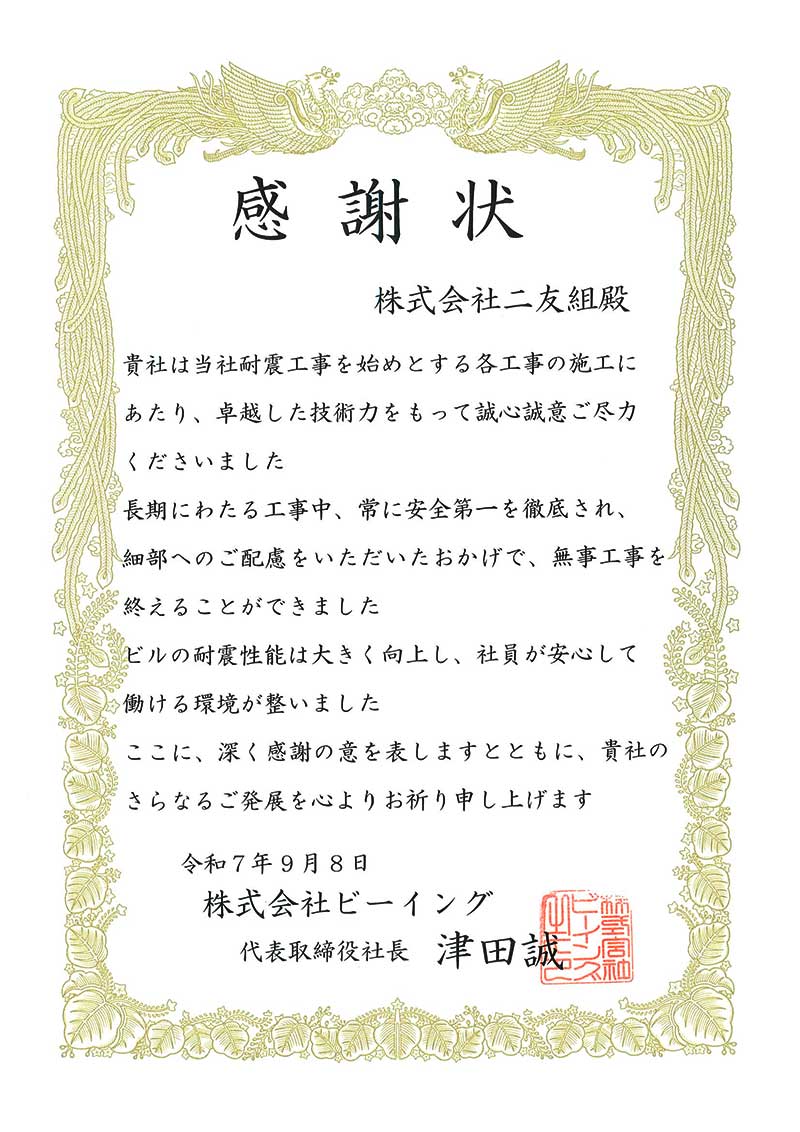 感謝状
株式会社二友組殿
貴社は当社耐震工事を始めとする各工事の施工に
あたり、卓越した技術力をもって誠心誠意ご尽力
くださいました
長期にわたる工事中、常に安全第一を徹底され、
細部へのご配慮をいただいたおかげで、無事工事を
終えることができました
ビルの耐震性能は大きく向上し、社員が安心して
働ける環境が整いました
ここに、深く感謝の意を表しますとともに、貴社の
さらなるご発展を心よりお祈り申し上げます
令和７年９月８日
株式会社ビーイング
代表取締役社長 津田誠
株式会社
ビーイング